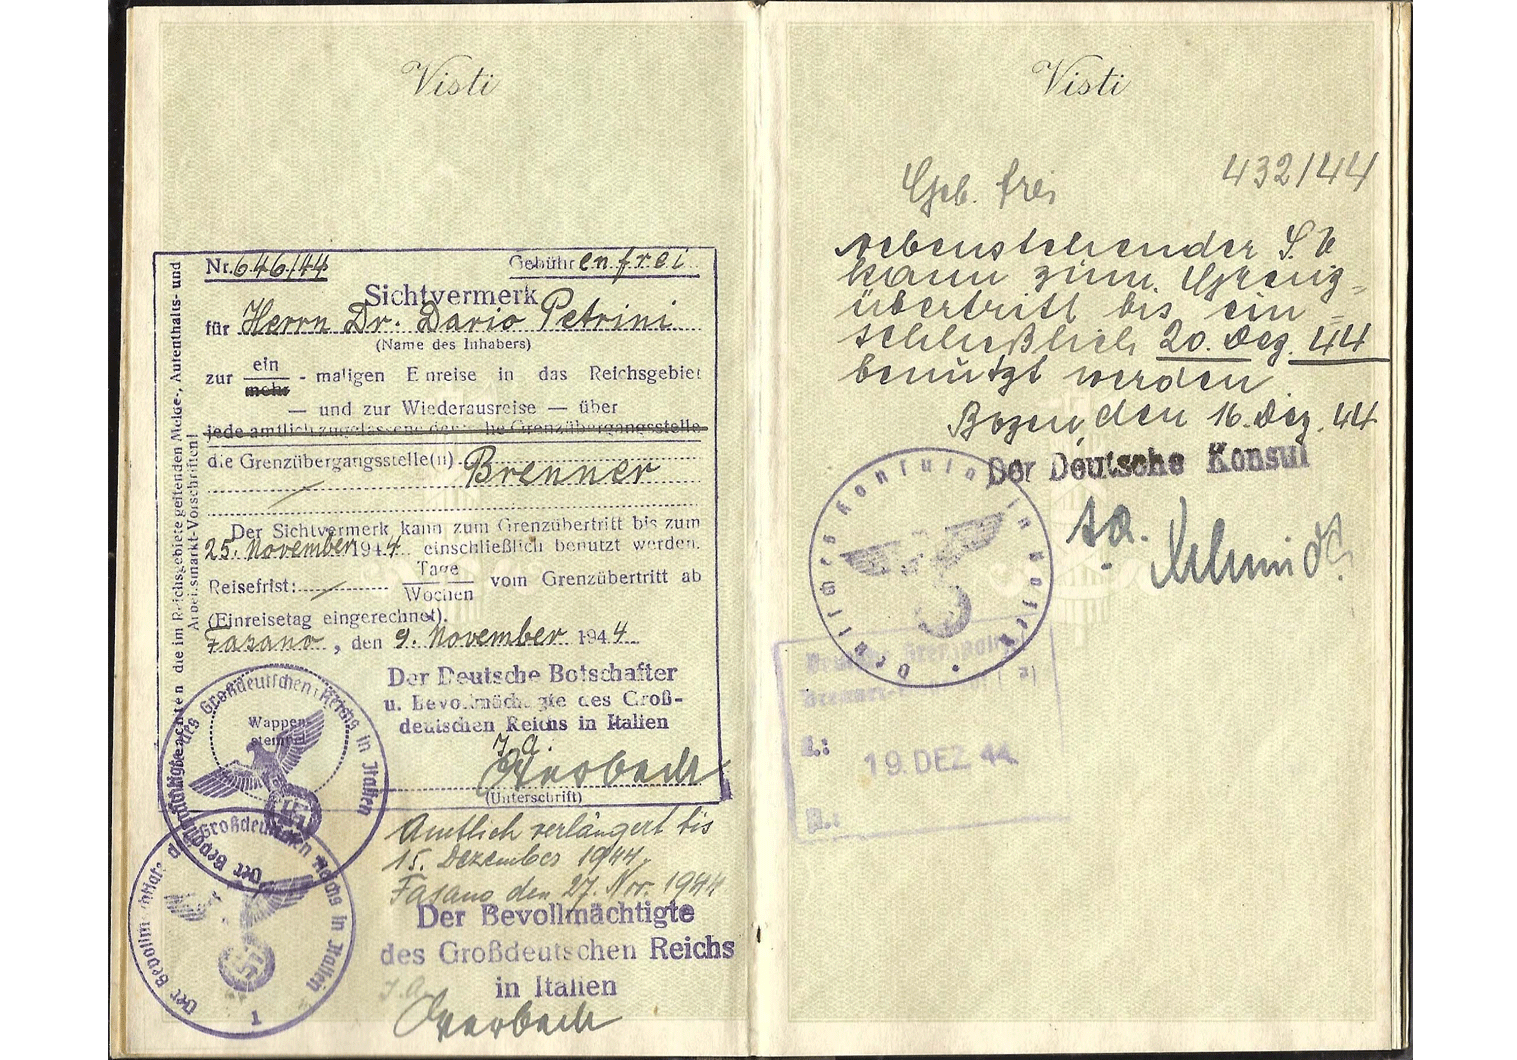 Visti
Nr. 646/44 Gebühren frei
Sichtvermerk
für Herrn Dr. Dario Petrini
(Name des Inhabers)
zur ein
mehr - maligen Einreise in das Reichsgebiet
— und zur Wiederausreise — über
jede amtlich zugelassene deutsche Grenzübergangsstelle
die Grenzübergangsstelle(n) Brenner
Der Sichtvermerk kann zum Grenzübertritt bis zum
25. November 1944 einschließlich benutzt werden.
Reisefrist: Tage
Wochen vom Grenzübertritt ab
(Einreisetag eingerechnet).
Fasano, den 9. November 1944
Der Deutsche Botschafter
u. Bevollmächtigte des Groß-
deutschen Reichs in Italien
I.A.
(Unterschrift)
die im Reichsgebiete geltenden Melde-, Aufenthalts- und
Arbeitsmarkt-Vorschriften!
Wappen-
stempel
Der Bevollmächtigte des Großdeutschen Reichs in Italien
Amtlich verlängert bis
15. Dezember 1944.
Fasano den 27. Nov. 1944
Der Bevollmächtigte
des Großdeutschen Reichs
in Italien
I.A.
Der Bevollmächtigte d Großdeutschen Reichs in Italien
1
Visti
Geb. frei 432/44
nebenstehender S.V.
kann zum Grenz=
übertritt bis ein=
schließlich 20. Dez. 44
benützt werden
Bozen, den 16. Dez. 44
Der Deutsche Konsul
Schmidt
Deutsches Konsulat in Bozen
Deutsche Grenzpolizei
Brenner-
19. DEZ. 44